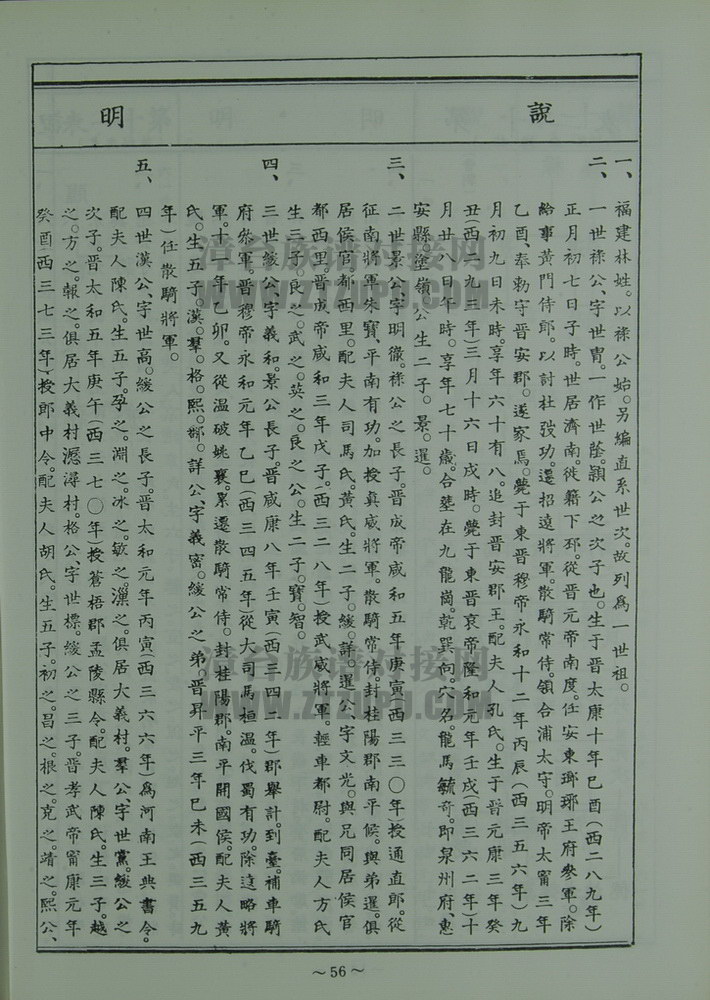 說明
一、福建林姓。以祿公始。另編直系世次。故列爲一世祖。
二、一世祿公、字世胄。一作世蔭。穎公之次子也。生于晉太康十年己酉(西二八九年)
正月初七日子時。世居濟南。徙籍下邳。從晉元帝南度。任安東瑯琊王府參軍。除
給事黃門侍郎。以討杜弢功。遷招遠將軍。散騎常侍。領合浦太守。明帝太甯三年
乙酉、奉勅守晉安郡。遂家焉。薨于東晉穆帝永和十二年丙辰(西三五六年)九
月初九日未時。享年六十有八。追封晉安郡王。配夫人孔氏。生于晉元康三年癸
丑(西二九三年)三月十六日戌時。薨于東晉哀帝隆和元年壬戌(西三六二年)十
月廿八日午時。享年七十歲。合塟在九龍崗。乾巽向。穴名。龍馬毓奇。即泉州府、惠
安縣塗嶺。公生二子。景。暹。
三、二世景公、字明徹。祿公之長子。晉成帝咸和五年庚寅(西三三〇年)授通直郎。從
征南將軍朱寶、平南有功。加授眞威將軍。散騎常侍。封桂陽郡南平候。與弟暹俱
居侯官。都西里。配夫人司馬氏。黃氏。生二子。緩。詳。暹公、字文光。與兄同居侯官
都西里。晉成帝咸和三年戊子。(西三二八年)授武威將軍。輕車都尉。配夫人方氏
生三子。良之。武之。英之。良之公。生二子。寶。智。
四、三世緩公、字義和。景公長子。晉咸康八年壬寅(西三四二年)郡舉計。到臺。補車騎
府叅軍。晉穆帝永和元年乙巳(西三四五年)從大司馬桓溫。伐蜀有功。除遠略將
軍。十一年乙卯。又從溫破姚襄。累遷散騎常侍。封桂陽郡。南平開國侯。配夫人黃
氏。生五子。漢。羣。格。熙。。詳公、字義窗。緩公之弟。晉昇平三年己未(西三五九
年)任散騎將軍。
五、四世漢公、字世高。緩公之長子。晉太和元年丙寅(西三六六年)爲河南王典書令。
配夫人陳氏。生五子。孕之。淵之。冰之。敏之。之。俱居大義村。羣公、字世黨。緩公之
次子。晉太和五年庚午(西三七〇年)授蒼梧郡孟陵縣令。配夫人陳氏。生三子。越
之。方之。報之。俱居大義村潯村。格公、字世標。緩公之三子。晉孝武帝甯康元年
癸酉(西三七三年)授郎中令。配夫人胡氏。生五子。初之。昌之。根之。克之。靖之。熙公、
~56~
漳台族谱对接网
WWW.ZTZUPU.COM
漳台族谱对接网
WWW.ZTZUPU.COM